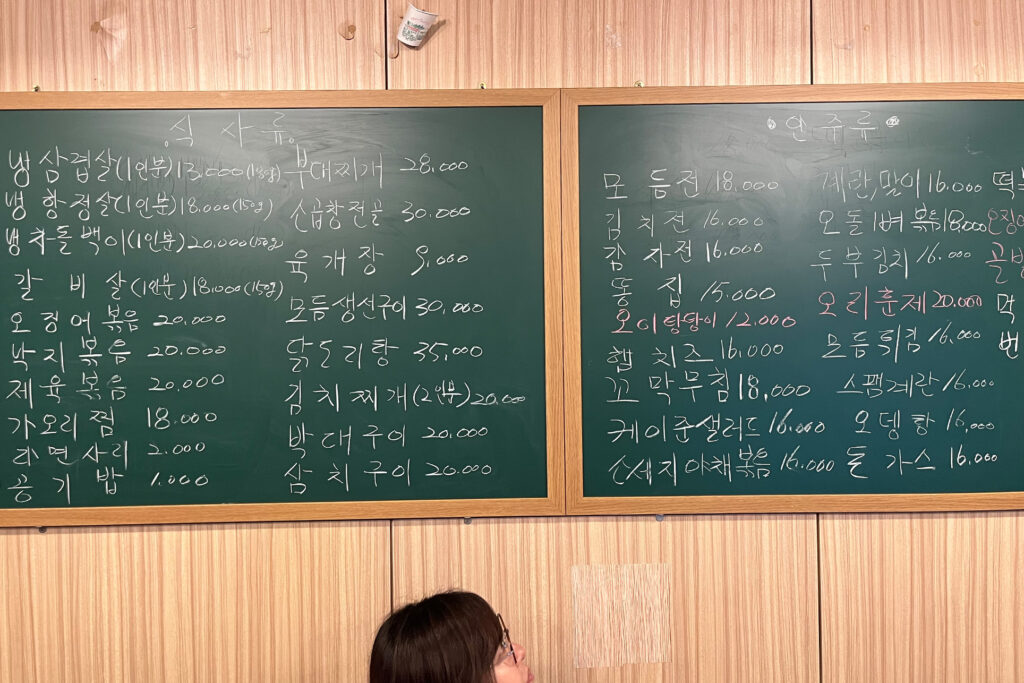 식사류
냉삼겹살(1인분)13,000(150g)
냉항정살(1인분)18.000(150g)
냉차돌백이(1인분)20.000(150g)
갈비살(1인분)18.000(150g)
오징어볶음 20.000
낙지볶음 20.000
제육볶음 20.000
가오리찜 18.000
라면사리 2.000
공기밥 1.000
부대찌개 28.000
소곱창전골 30.000
육개장 9,000
모듬생선구이 30,000
닭도리탕 35,000
김치찌개(2인분)20.000
박대구이 20,000
삼치구이 20.000
안주류
모듬전 18.000
김치전 16.000
감자전 16.000
똥집 15.000
오이탕탕이 12.000
햄치즈 16.000
꼬막무침 18,000
케이준샐러드 16.000
소세지야채볶음 16.000
계란말이 16.000
오돌뼈볶음 18.000
두부김치 16.000
오리훈제 20.000
모듬튀킴 16.000
스팸계란 16,000
오뎅탕 16,000
돈가스 16,000